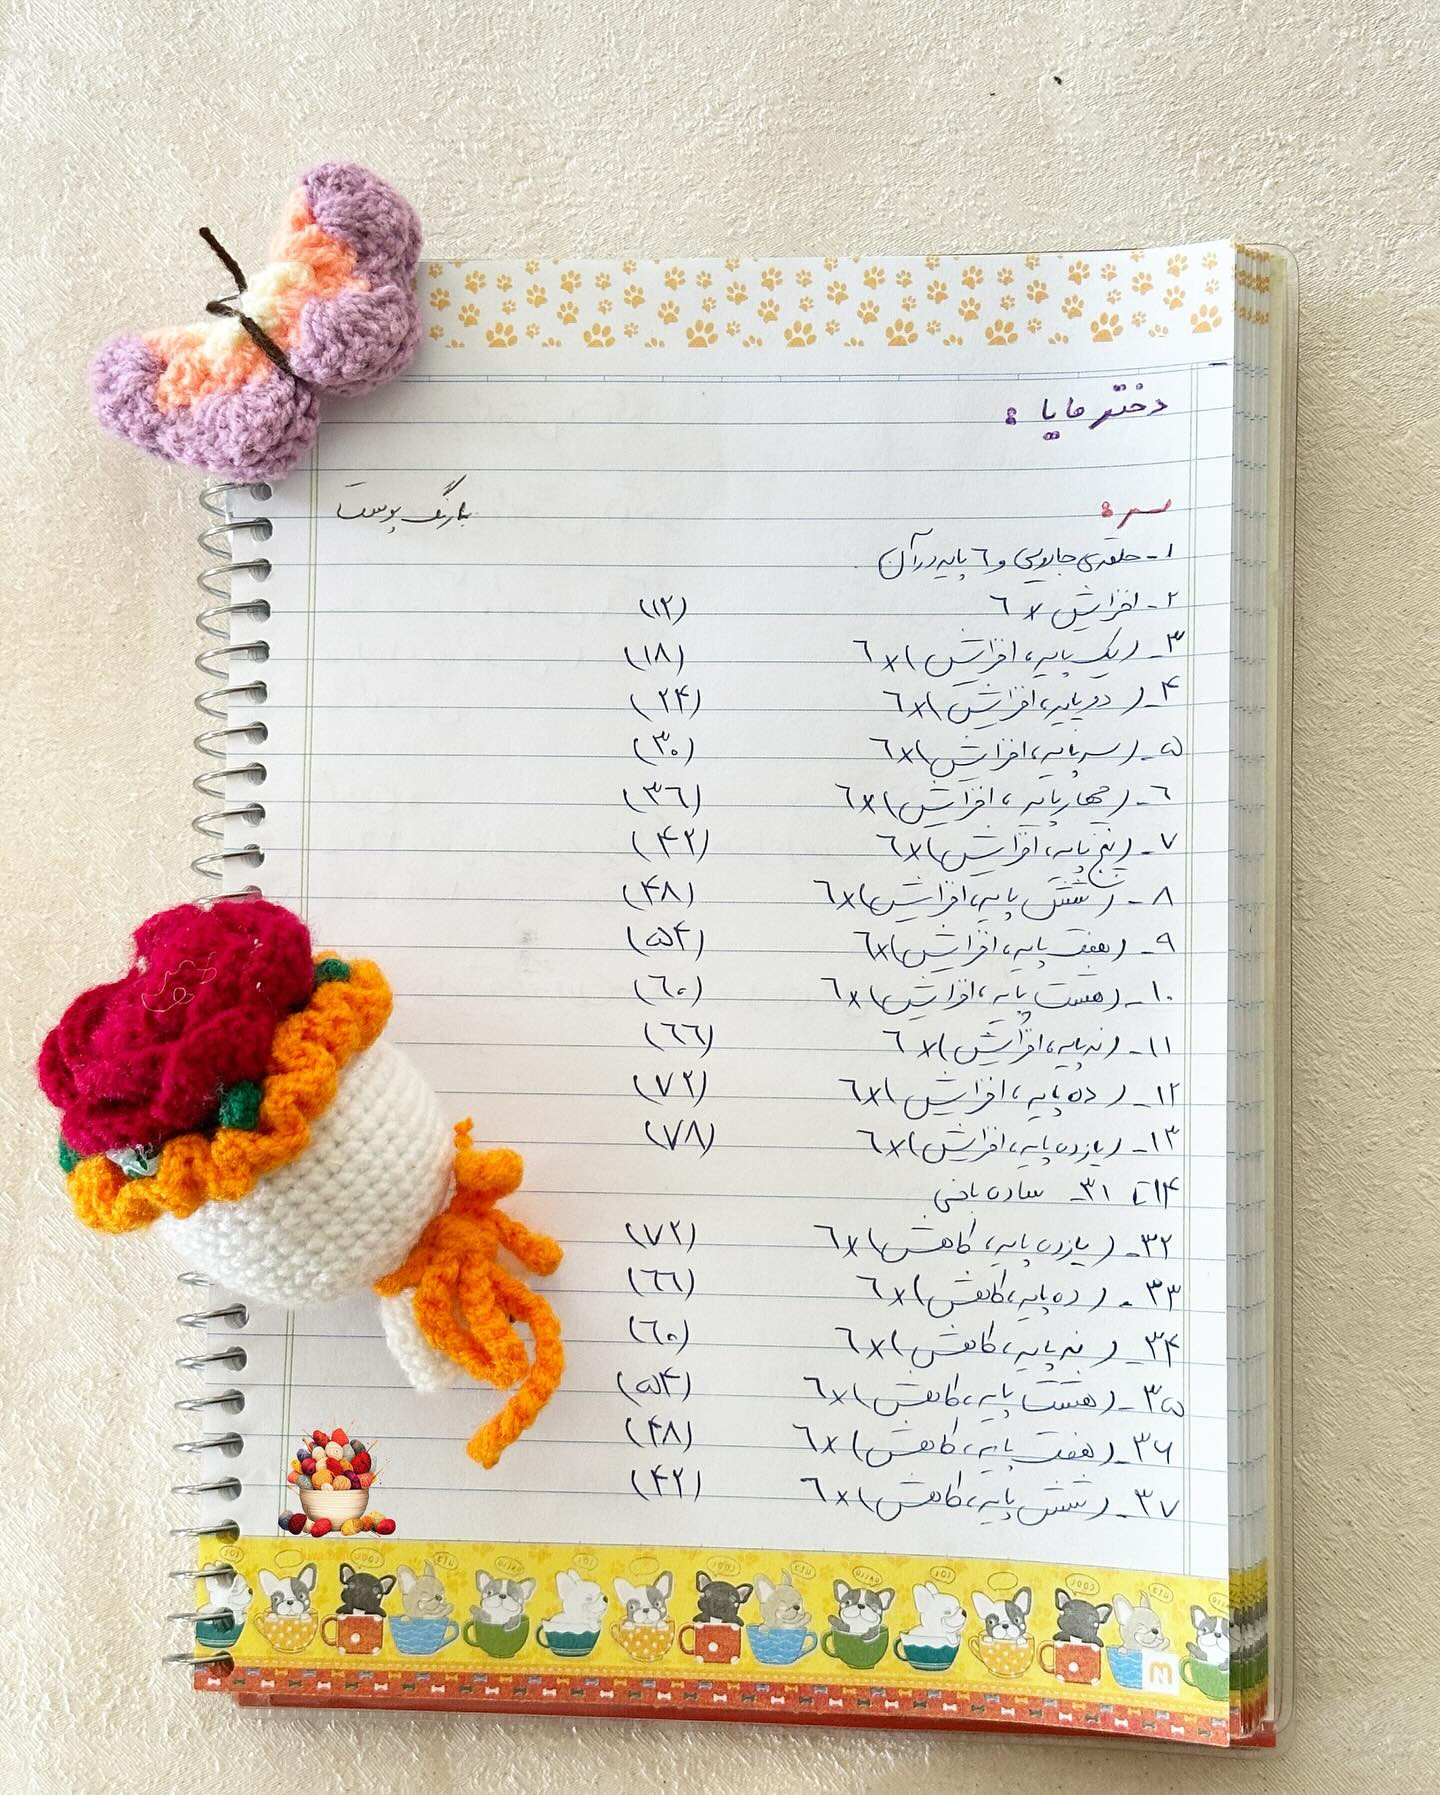 دختر مایا :
سر :
با رنگ پوست
۱- حلقه‌ی جادویی و ٦ پایه در آن
۲- افزایش × ٦ (۱۲)
۳- (یک پایه، افزایش) × ٦ (۱۸)
۴- (دو پایه، افزایش) × ٦ (۲۴)
۵- (سه پایه، افزایش) × ٦ (۳۰)
٦- (چهار پایه، افزایش) × ٦ (۳٦)
۷- (پنج پایه، افزایش) × ٦ (۴۲)
۸- (شش پایه، افزایش) × ٦ (۴۸)
۹- (هفت پایه، افزایش) × ٦ (۵۴)
۱۰- (هشت پایه، افزایش) × ٦ (٦۰)
۱۱- (نه پایه، افزایش) × ٦ (٦٦)
۱۲- (ده پایه، افزایش) × ٦ (۷۲)
۱۳- (یازده پایه، افزایش) × ٦ (۷۸)
۱۴ تا ۳۱- ساده بافی
۳۲- (یازده پایه، کاهش) × ٦ (۷۲)
۳۳- (ده پایه، کاهش) × ٦ (٦٦)
۳۴- (نه پایه، کاهش) × ٦ (٦۰)
۳۵- (هشت پایه، کاهش) × ٦ (۵۴)
۳۶- (هفت پایه، کاهش) × ٦ (۴۸)
۳۷- (شش پایه، کاهش) × ٦ (۴۲)